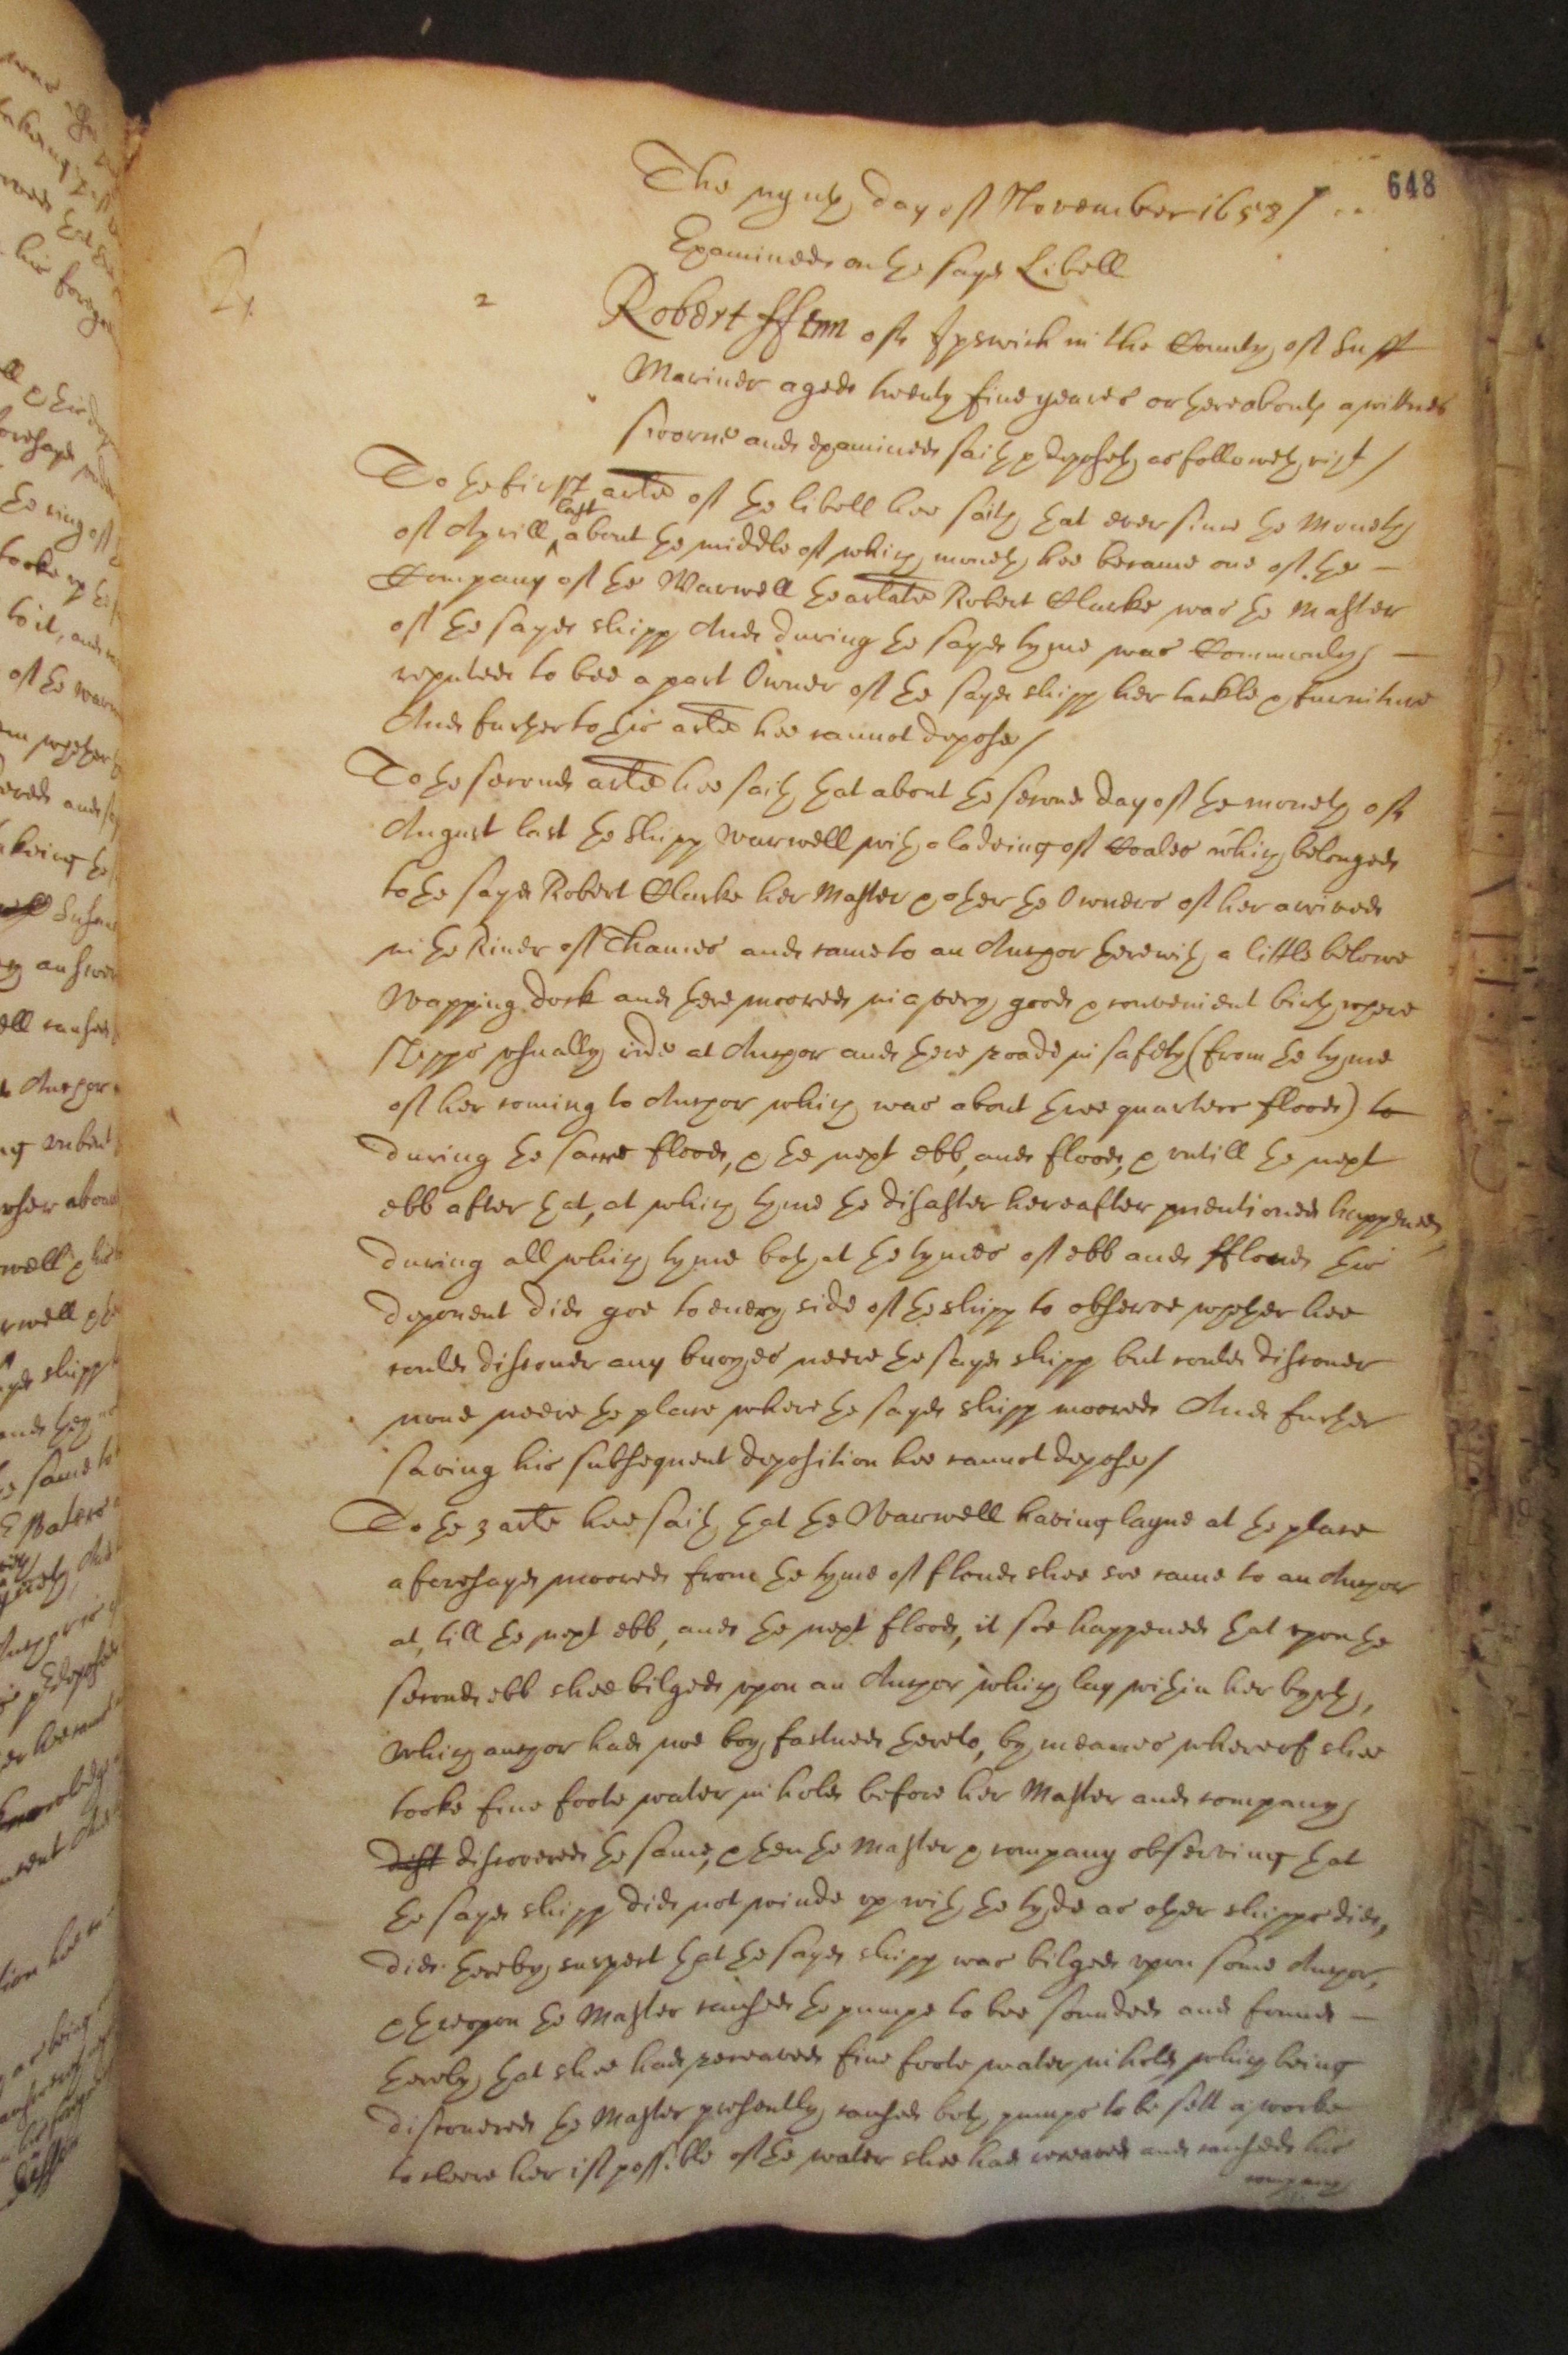 648
The nynth day of November 1658 /
Examined on the sayd Libell
2
Robert ffenn of Ipswich in the County of Suff
Mariner aged twenty five yeares or thereabouts a wittnes
sworne and examined saith & deposeth as followeth vizt /
To the first arle of the libell hee saith that ever since the Moneth
of Aprill last about the middle of which moneth hee became one of the –
Company of the Warwell the arlate Robert Clarke was the Master
of the sayd shipp And during the sayd tyme was Commonly –
reputed to bee a part Owner of the sayd shipp her tackle & furniture
And further to this arle hee cannot depose /
To the second arle hee saith that about the second day of the moneth of
August last the shipp Warwell with a lodeing of Coales which belonged
to the sayd Robert Clarke her Master & other the Owners of her arrived
in the River of Thames and came to an Anchor therewith a little belowe
Wapping dock and there moored in a very good & convenient birth where
shipps usually ride at Anchor and there roade in safety (from the tyme
of her coming to Anchor which was about three quarters flood) to
during the same flood, & the next ebb, and flood, & untill the next
ebb after that, at which tyme the disaster hereafter mentioned happened,
during all which tyme both at the tymes of ebb and fflood this
deponent did goe to every side of the shipp to observe whether hee
could discover any buoyes neere the sayd shipp but could discover
none neere the place where the sayd shipp moored And further
saving his subsequent deposition hee cannot depose /
To the 3 arle hee saith that the Warwell having layne at the place
aforesayd moored from the tyme of flood shee soe came to an Anchor
at, till the next ebb, and the next flood, it soe happened that upon the
second ebb shee bilged upon an Anchor which lay within her byrth,
which anchor had noe boy fastned thereto, by meanes whereof shee
tooke five foote water in hold before her Master and company
dist discovered the same, & then the Master & company observing that
the sayd shipp did not winde up with the tyde as other shipps did,
did thereby suspect that the sayd shipp was bilged upon some Anchor,
& thereupon the Master caused the pumpe to bee sounded and found –
thereby that shee had receaved five foote water in hold, which being
discovered the Master presently caused both pumps to be sett a worke
to cleere her if possible of the water shee had receaved and caused his
company